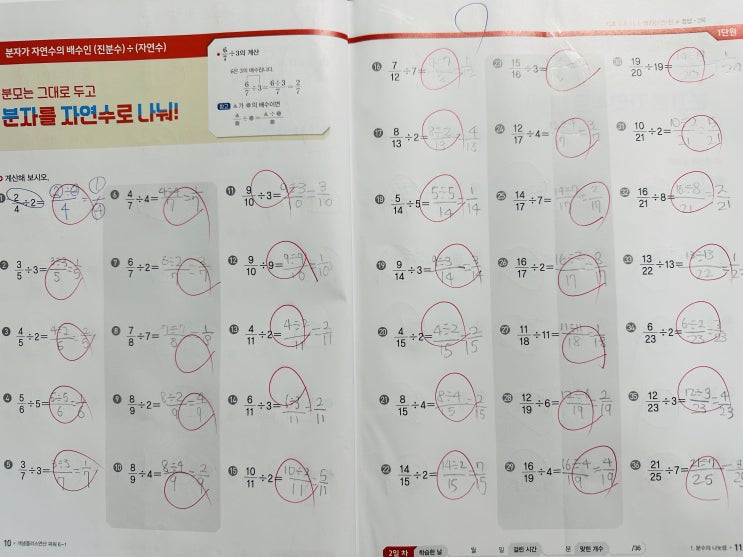 분자가 자연수의 배수인 (진분수)÷(자연수)
분모는 그대로 두고
분자를 자연수로 나눠!
6/7÷3의 계산
6은 3의 배수입니다.
6/7÷3=6÷3/7=2/7
참고 ▲가 ●의 배수이면
▲/■÷●=▲÷●/■
계산해 보시오.
1 2/4÷2=2÷2/4=1/4
2 3/5÷3=3÷3/5=1/5
3 4/5÷2=4÷2/5=2/5
4 5/6÷5=5÷5/6=1/6
5 3/7÷3=3÷3/7=1/7
6 4/7÷4=4÷4/7=1/7
7 6/7÷2=6÷2/7=3/7
8 7/8÷7=7÷7/8=1/8
9 8/9÷2=8÷2/9=4/9
10 8/9÷4=8÷4/9=2/9
11 9/10÷3=9÷3/10=3/10
12 9/10÷9=9÷9/10=1/10
13 4/11÷2=4÷2/11=2/11
14 6/11÷3=6÷3/11=2/11
15 10/11÷2=10÷2/11=5/11
10 · 개념플러스연산 파워 6-1
정답 · 2쪽
1단원
16 7/12÷7=
17 8/13÷2=8÷2/13=4/13
18 5/14÷5=5÷5/14=1/14
19 9/14÷3=9÷3/14=3/14
20 4/15÷2=4÷2/15=2/15
21 8/15÷4=8÷4/15=2/15
22 14/15÷2=14÷2/15=7/15
23 15/16÷3=
24 12/17÷4=
25 14/17÷7=14÷7/17=2/17
26 16/17÷2=
27 11/18÷11=11÷11/18=1/18
28 12/19÷6=12÷6/19=2/19
29 16/19÷4=16÷4/19=4/19
30 19/20÷19=
31 10/21÷2=10÷2/21=5/21
32 16/21÷8=16÷8/21=2/21
33 13/22÷13=13÷13/22=1/22
34 6/23÷2=6÷2/23=3/23
35 12/23÷3=12÷3/23=4/23
36 21/25÷7=21÷7/25=3/25
2일 차 학습한 날 월 일 걸린 시간 분 맞힌 개수 /36
1. 분수의 나눗셈 · 11